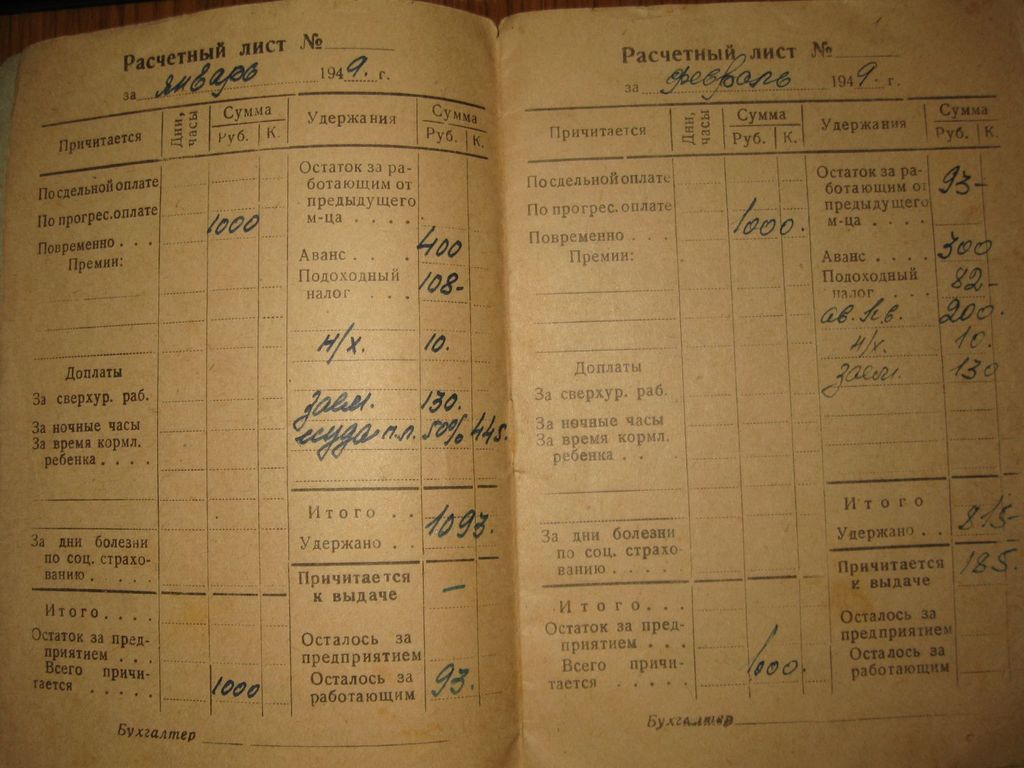 Расчетный лист №
за январь 1949. г.
Причитается Дни, часы Сумма Удержания Сумма
Руб. К. Руб. К.
По сдельной оплате
По прогрес. оплате 1000
Повременно . . .
Премии:
Остаток за ра-
ботающим от
предыдущего
м-ца . . . .
Аванс . . . 400
Подоходный
налог . . . 108-
н/х. 10.
Доплаты
За сверхур. раб.
заем. 130.
За ночные часы
п.п. 50% 445.
За время кормл.
ребенка . . . .
Итого . .
Удержано . . 1093.
За дни болезни
по соц. страхо-
ванию . . . .
Причитается
к выдаче —
Итого . . . .
Остаток за пред-
приятием . . .
Всего причи-
тается . . . . . 1000
Осталось за
предприятием
Осталось за
работающим 93.
Бухгалтер
Расчетный лист №
за февраль 1949. г.
Причитается Дни, часы Сумма Удержания Сумма
Руб. К. Руб. К.
По сдельной оплате
По прогрес. оплате 1000.
Повременно . . .
Премии:
Остаток за ра-
ботающим от
предыдущего
м-ца . . . . 93-
Аванс . . . . 300
Подоходный
налог . . . 82-
ав. п.в. 200.
н/х. 10.
заем. 130
Доплаты
За сверхур. раб.
За ночные часы
За время кормл.
ребенка . .
Итого
Удержано . . 815-
За дни болезни
по соц. страхо-
ванию . . . .
Причитается
к выдаче 185.
Итого . . .
Остаток за пред-
приятием . . .
Всего причи-
тается . . . . . 1000.
Осталось за
предприятием
Осталось за
работающим
Бухгалтер